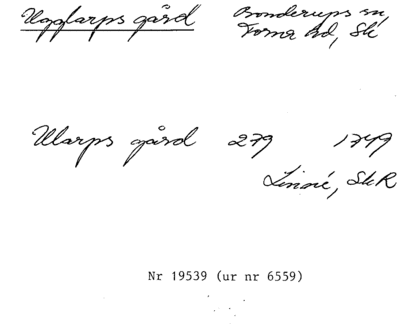 Ugglarps gård
Bonderups sn,
Torna hd, Sk
Ularps gård 279 1749
Linné, SkR
Nr 19539 (ur nr 6559)